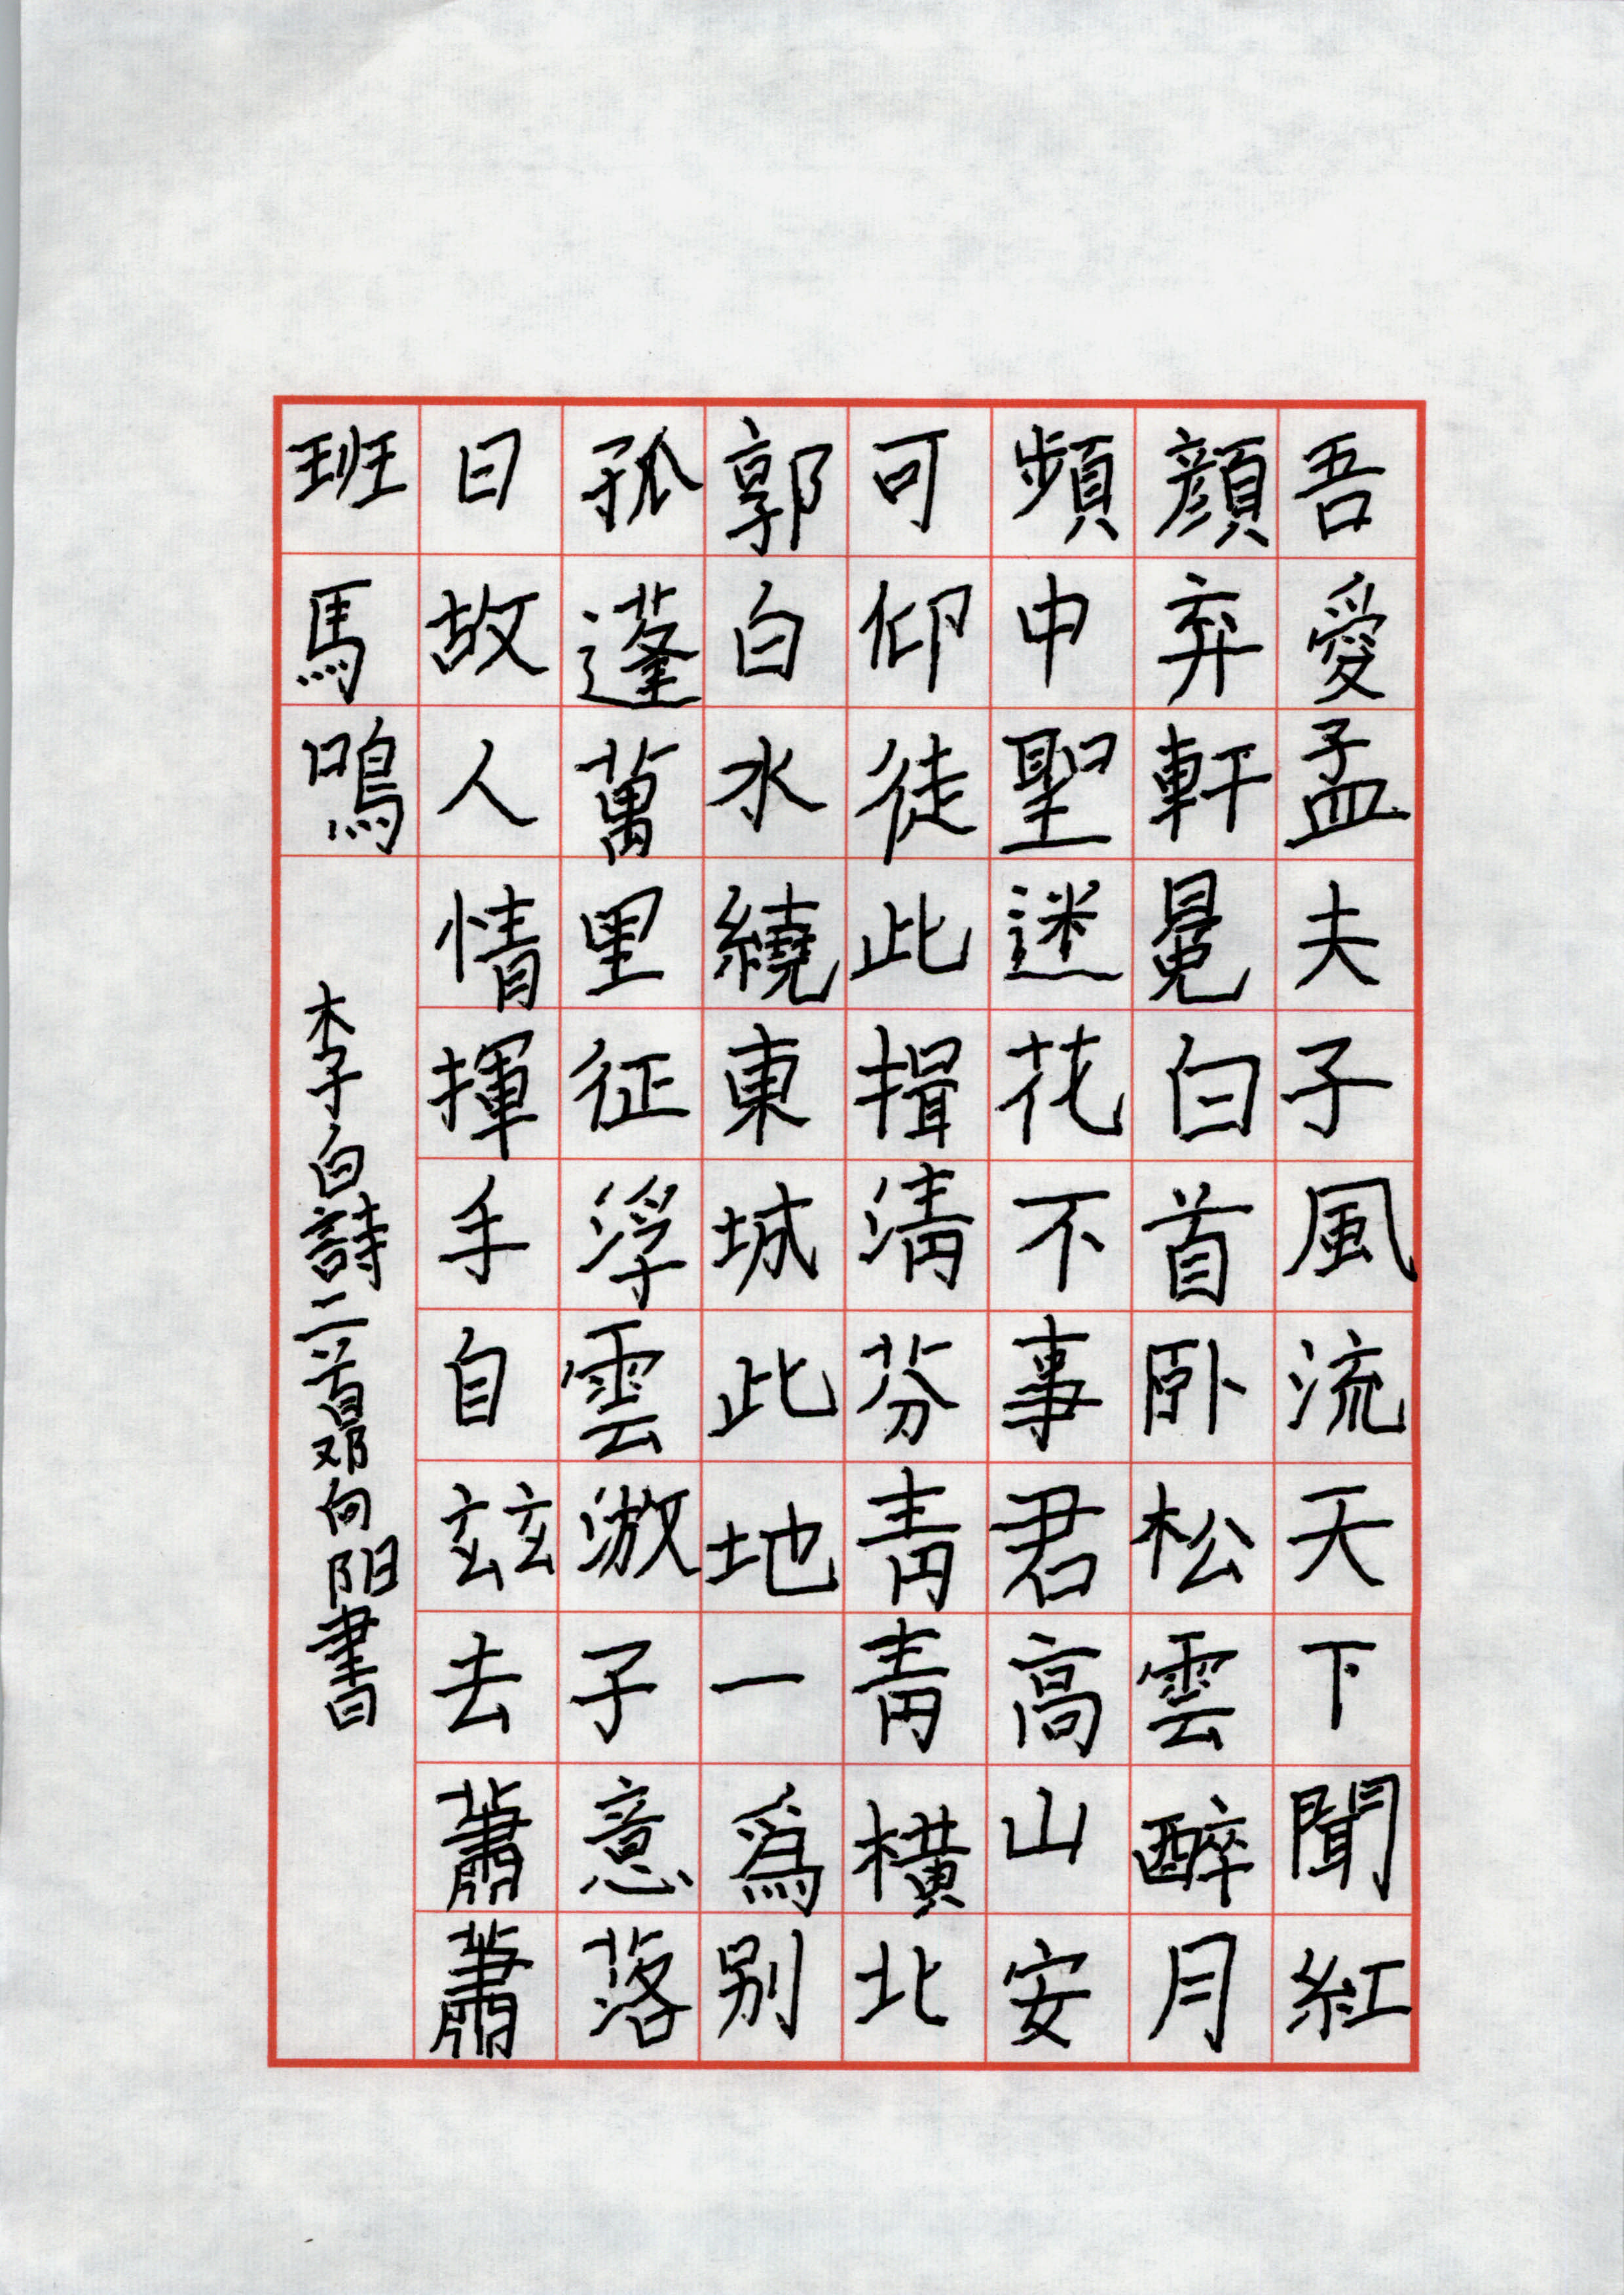 吾愛孟夫子風流天下聞紅
顔弃軒冕白首卧松雲醉月
頻中聖迷花不事君高山安
可仰徒此揖清芬青青橫北
郭白水繞東城此地一爲别
孤蓬萬里征浮雲游子意落
日故人情揮手自兹去蕭蕭
班馬鳴
李白詩二首邓向阳書